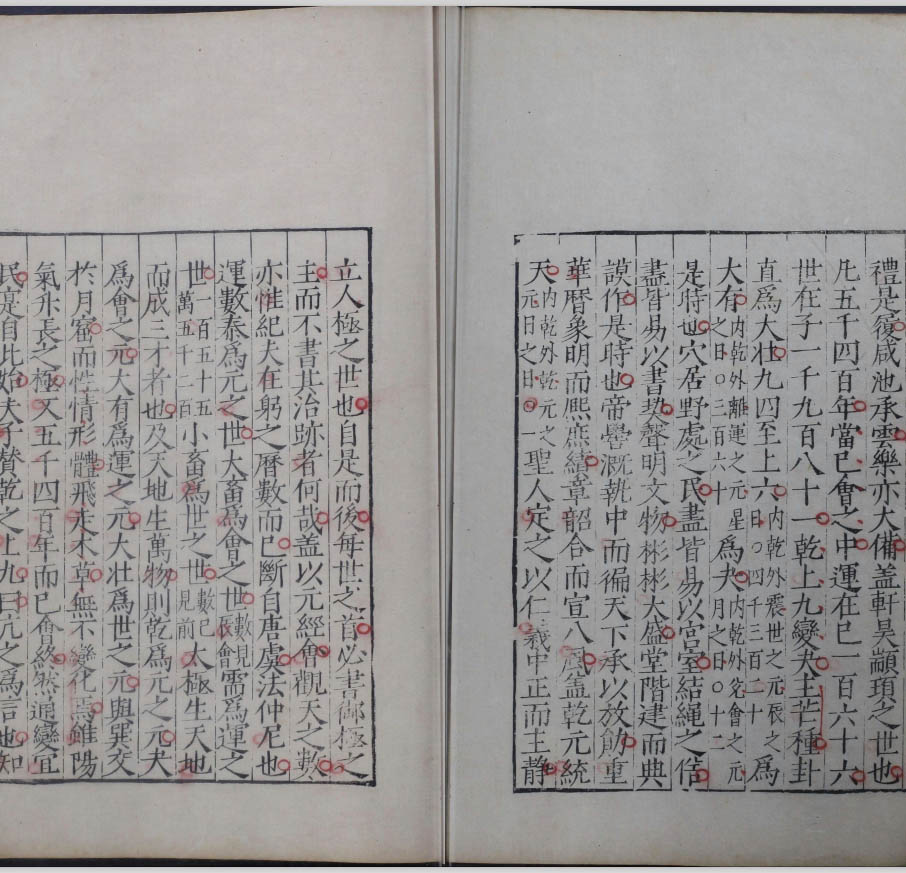 禮是履咸池承雲樂亦大備盖軒昊顓頊之世也
凡五千四百年當巳會之中運在巳一百六十六
世在子一千九百八十一乾上九變夬主芒種卦
直爲大壯九四至上六内乾外震世之元辰之日〇四千三百二十爲
大有内乾外離運之元星之日〇三百六十爲夬内乾外兊會之元月之日〇十二
是時也穴居野處之民盡皆易以宮室結繩之俗
盡皆易以書契聲明文物彬彬大盛堂階建而典
謨作是時也帝嚳溉執中而徧天下承以放勛重
華曆象明而熈庶績章韶合而宣八風盖乾元統
天内乾外乾元之元日之日〇一聖人定之以仁義中正而主静
立人極之世也自是而後每世之首必書御極之
主而不書其治跡者何哉盖以元經會觀天之數
亦惟紀夫在躬之曆數而已斷自唐虞法仲尼也
運數泰爲元之世大畜爲會之世數見辰會需爲運之
世一百五十五萬五千二百小畜爲世之世數已見前太極生天地
而成三才者也及天地生萬物則乾爲元之元夬
爲會之元大有爲運之元大壯爲世之元與巽交
於月窟而性情形體飛走木草無不變化焉雖陽
氣升長之極又五千四百年而巳會終然通變宜
民是自此始夫子贊乾之上九曰亢之爲言也知